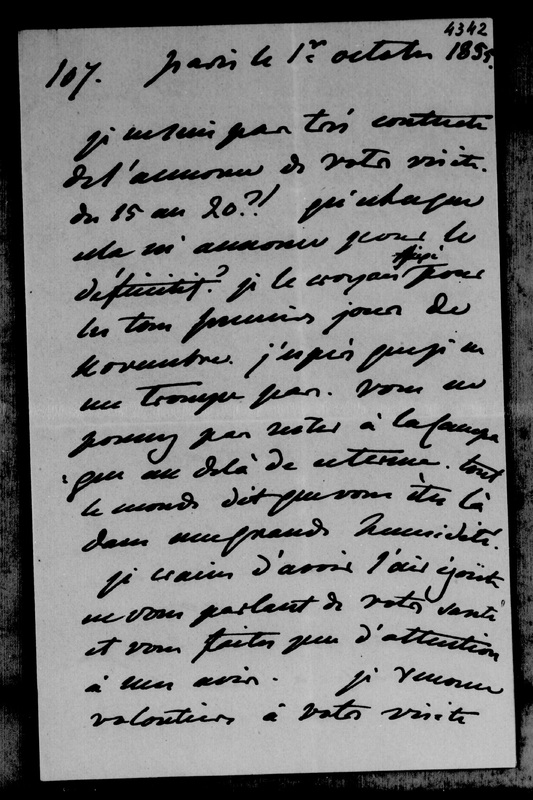 4342
107. paris le 1er octobre 1855.
je ne suis pas très contente
de l'annonce de votre visite.
du 15 au 20?! qu'est-ce que
cela m'annonce pour le
définitif? je le croyais fixé pour
les tous premiers jours de
Novembre. j'espère que je ne
me trompe pas. vous ne
pouvez pas rester à la Campa
gne au delà de ce terme. tout
le monde dit que vous êtes là
dans une grande humidité.
je crains d'avoir l'air égoiste
en vous parlant de votre santé
et vous faites peu d'attention
à mes avis. je renonce
volontiers à votre visite